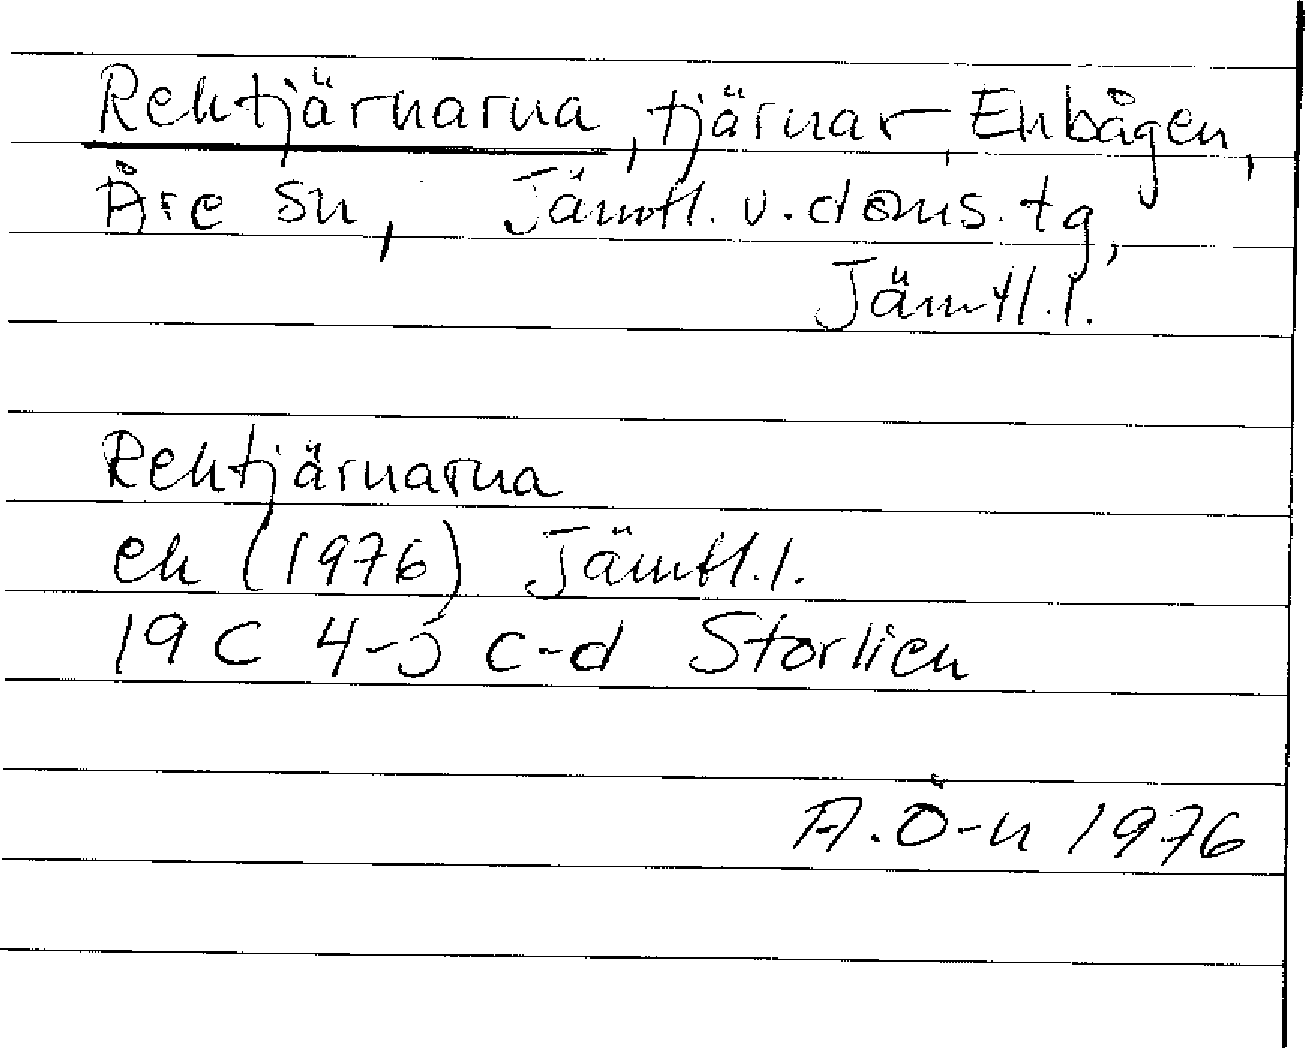 Rentjärnarna, tjärnar, Enbågen,
Åre sn, Jämtl. v. doms. tg,
Jämtl. l.
Rentjärnarna
ek (1976) Jämtl. l.
19 C 4-5 c-d Storlien
A. Ö-n 1976